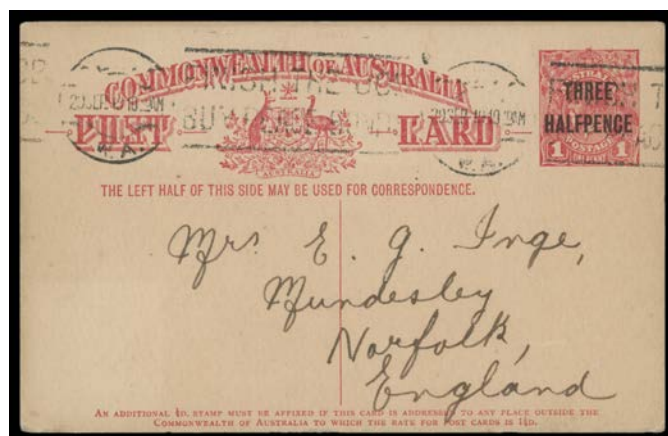 COMMONWEALTH OF AUSTRALIA
POST CARD
AUSTRALIA
THREE
HALFPENCE
1 POSTAGE 1
W.A.
W.A.
THE LEFT HALF OF THIS SIDE MAY BE USED FOR CORRESPONDENCE.
Mrs E. G. Inge,
Mundesley
Norfolk,
England
AN ADDITIONAL ½D. STAMP MUST BE AFFIXED IF THIS CARD IS ADDRESSED TO ANY PLACE OUTSIDE THE
COMMONWEALTH OF AUSTRALIA TO WHICH THE RATE FOR POST CARDS IS 1½D.